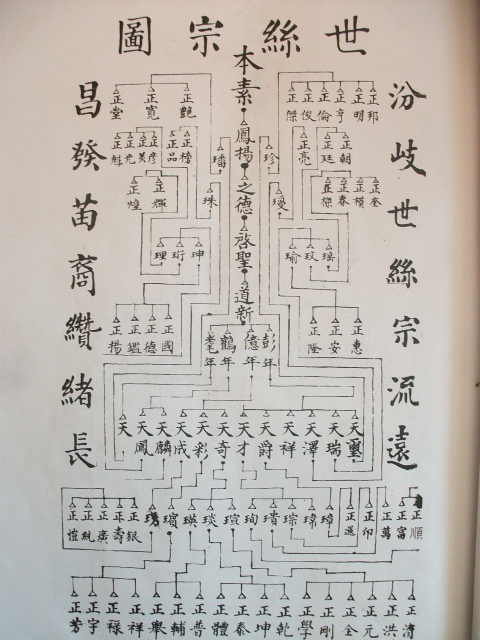 世絲宗圖
汾岐世絲宗流遠
昌發苗裔纘緒長
本素
鳳揚
之德
啓聖
道新
彭年
億年
鶴年
耄年
正邦
正明
正亨
正倫
正俊
正傑
正艷
正寬
正堂
正朝
正廷
正亮
正榜
正品
正彦
正美
正光
正魁
珍
璠
正奎
正橫
正春
正輝
正煌
璦
珠
瑶
玟
瑜
珅
珩
理
正惠
正安
正隆
正國
正德
正鑑
正揚
天璽
天瑞
天澤
天祥
天爵
天才
天奇
天彩
天成
天麟
天鳳
天
正順
正富
正萬
正印
正選
璋
琮
瑰
珣
瑄
琰
瑛
璸
正銀
正壽
正廣
正統
正愷
正清
正洪
正元
正金
正剛
正學
正乾
正坤
正泰
正體
正普
正輔
正舉
正祥
正祿
正宇
正芳